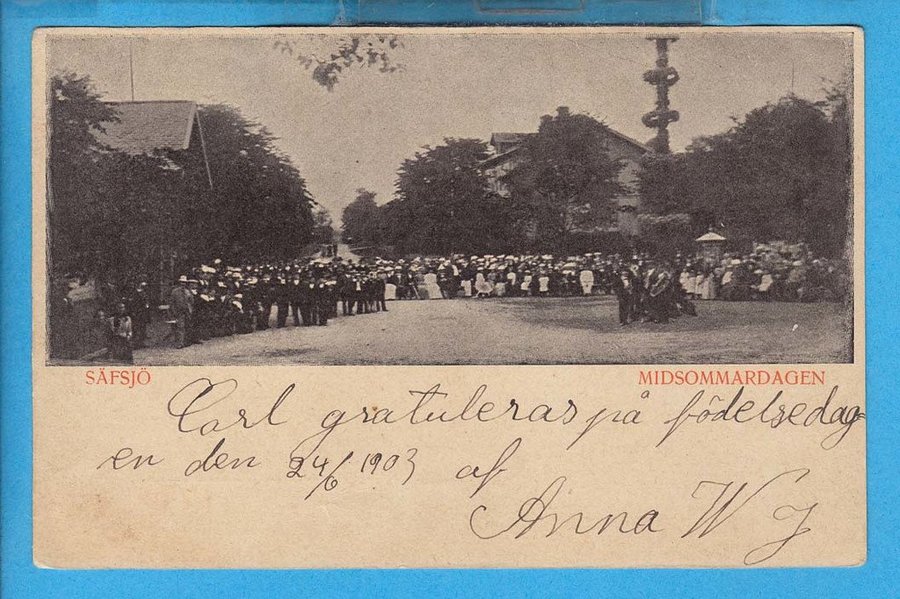 SÄFSJÖ MIDSOMMARDAGEN
Carl gratuleras på födelsedag
en den 24/6 1903 af
Anna W J